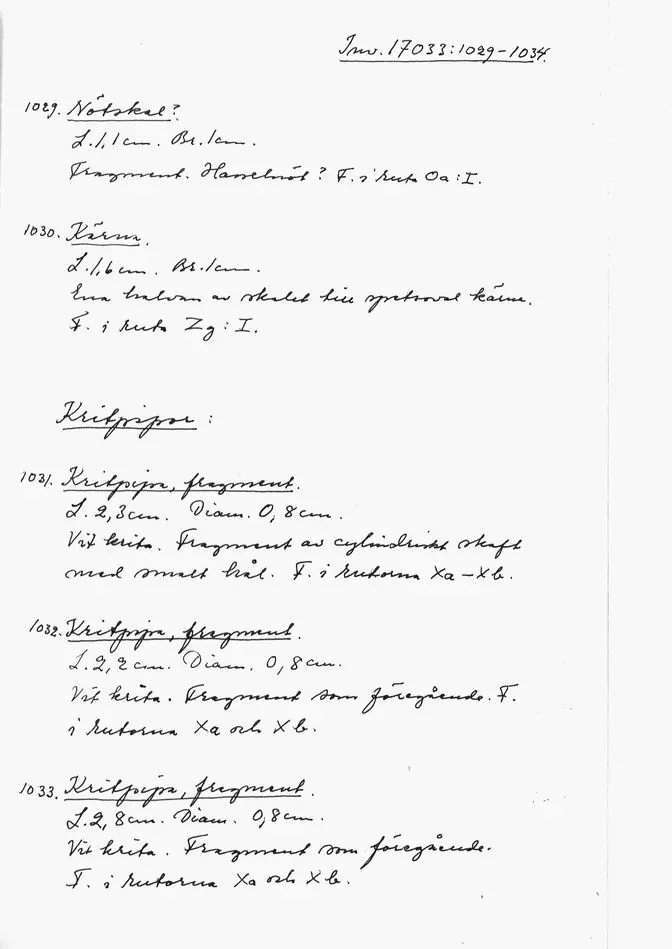 Inv. 17033:1029-1034.
1029. Nötskal?
L. 1,1 cm. Br. 1 cm.
Fragment. Hasselnöt? F. i ruta Oa:I.
1030. Kärna.
L. 1,6 cm. Br. 1 cm.
Ena halvan av skalet till spetsoval kärna.
F. i ruta Zg: I.
Kritpipor:
1031. Kritpipa, fragment.
L. 2,3 cm. Diam. 0,8 cm.
Vit krita. Fragment av cylindriskt skaft
med smalt hål. F. i rutorna Xa-Xb.
1032. Kritpipa, fragment.
L. 2,2 cm. Diam. 0,8 cm.
Vit krita. Fragment som föregående. F.
i rutorna Xa och Xb.
1033. Kritpipa, fragment.
L. 2,8 cm. Diam. 0,8 cm.
Vit krita. Fragment som föregående.
F. i rutorna Xa och Xb.